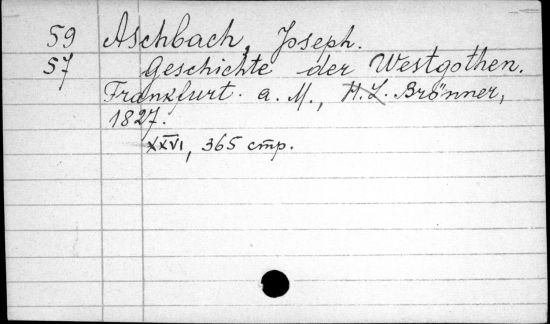 59 Aschbach, Joseph.
57 Geschichte der Westgothen.
Frankfurt. a. M., H. L. Brönner,
1827.
XXVI, 365 стр.